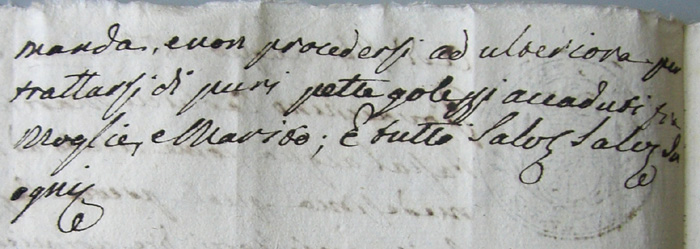 manda, e non procedersi ad ulteriora per
trattarsi di puri pettegolezzi accaduti frà
Moglie, e Marito; E tutto Salvo Salvo da
ogni